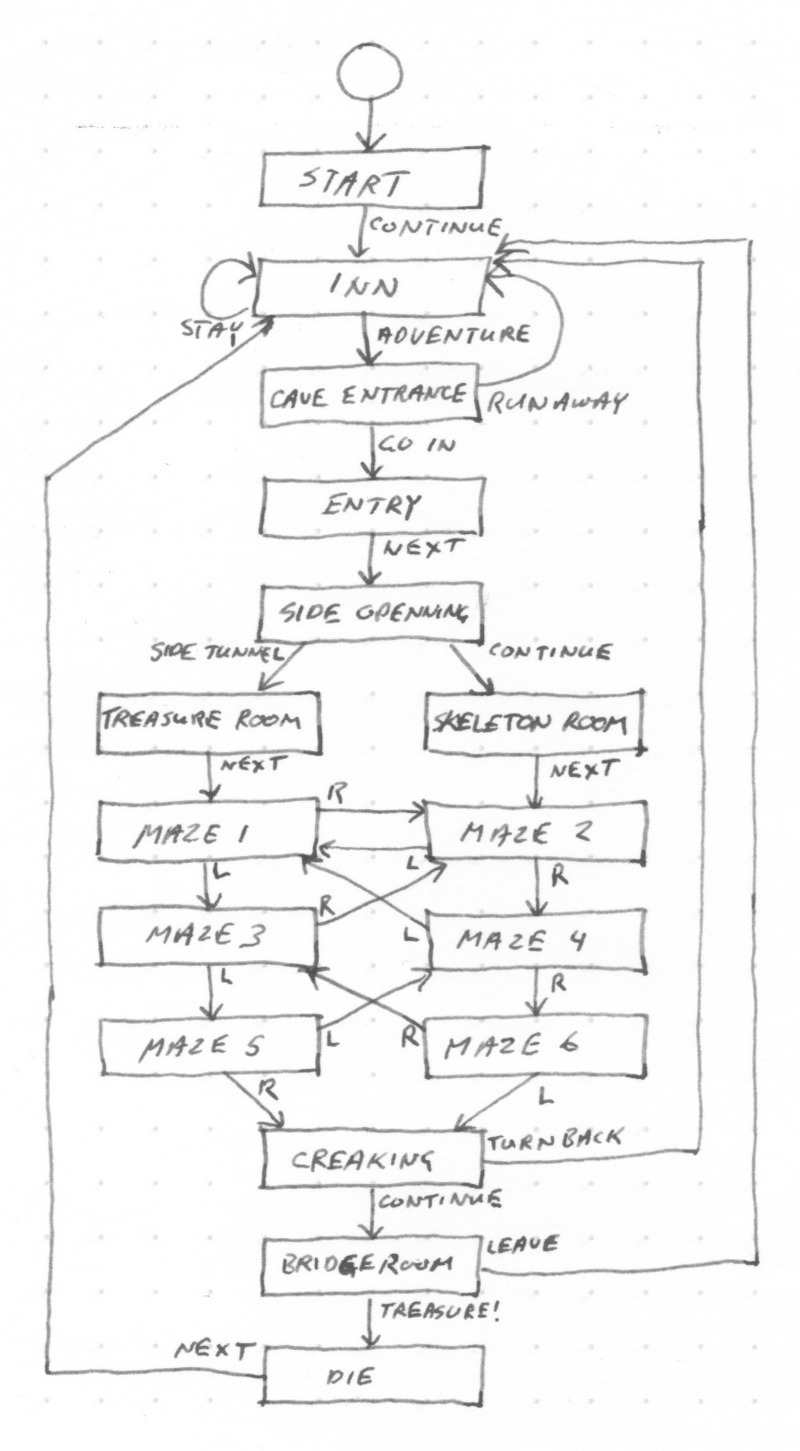 START
CONTINUE
INN
STAY
ADVENTURE
CAVE ENTRANCE
RUN AWAY
GO IN
ENTRY
NEXT
SIDE OPENNING
SIDE TUNNEL
CONTINUE
TREASURE ROOM
SKELETON ROOM
NEXT
NEXT
R
MAZE 1
MAZE 2
L
L
R
R
MAZE 3
L
MAZE 4
L
R
MAZE 5
L
R
MAZE 6
R
L
CREAKING
TURN BACK
CONTINUE
BRIDGE ROOM
LEAVE
TREASURE!
NEXT
DIE